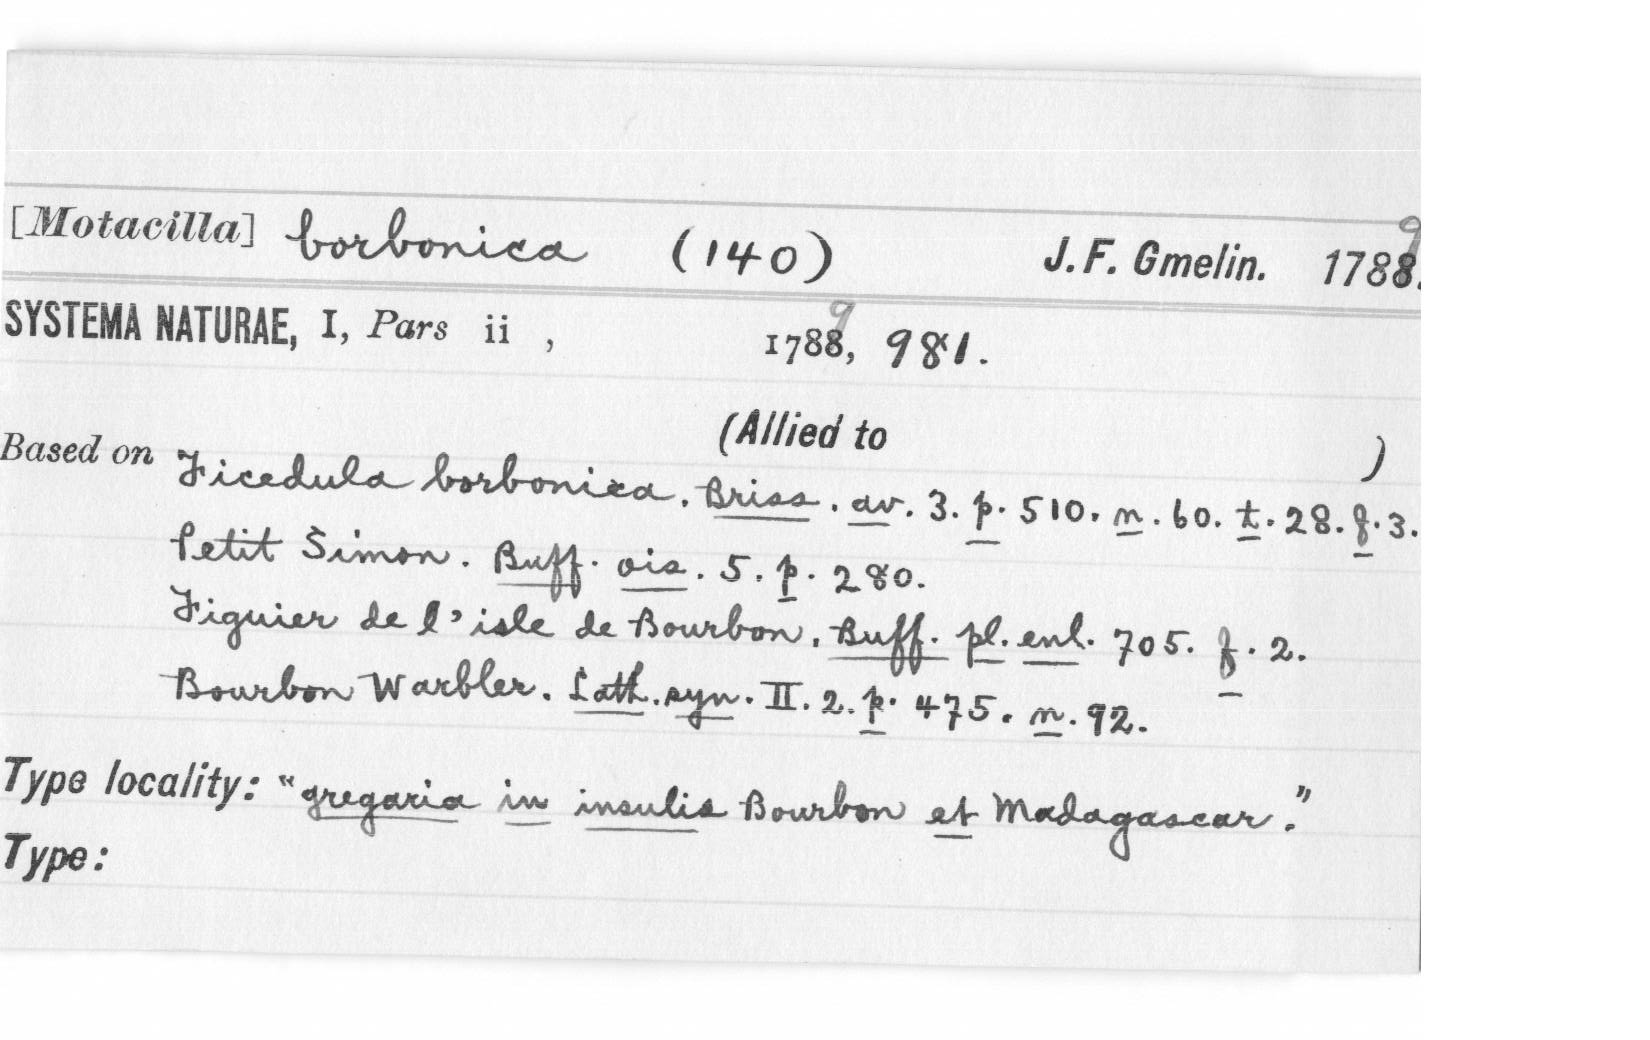 [Motacilla] borbonica (140) J. F. Gmelin. 1788. 9
SYSTEMA NATURAE, I, Pars ii , 1788, 9 981.
(Allied to )
Based on Ficedula borbonica. Briss. av. 3. p. 510. n. 60. t. 28. f. 3.
Petit Simon. Buff. ois. 5. p. 280.
Figuier de l'isle de Bourbon. Buff. pl. enl. 705. f. 2.
Bourbon Warbler. Lath. syn. II. 2. p. 475. n. 92.
Type locality: "gregaria in insulis Bourbon et Madagascar."
Type: